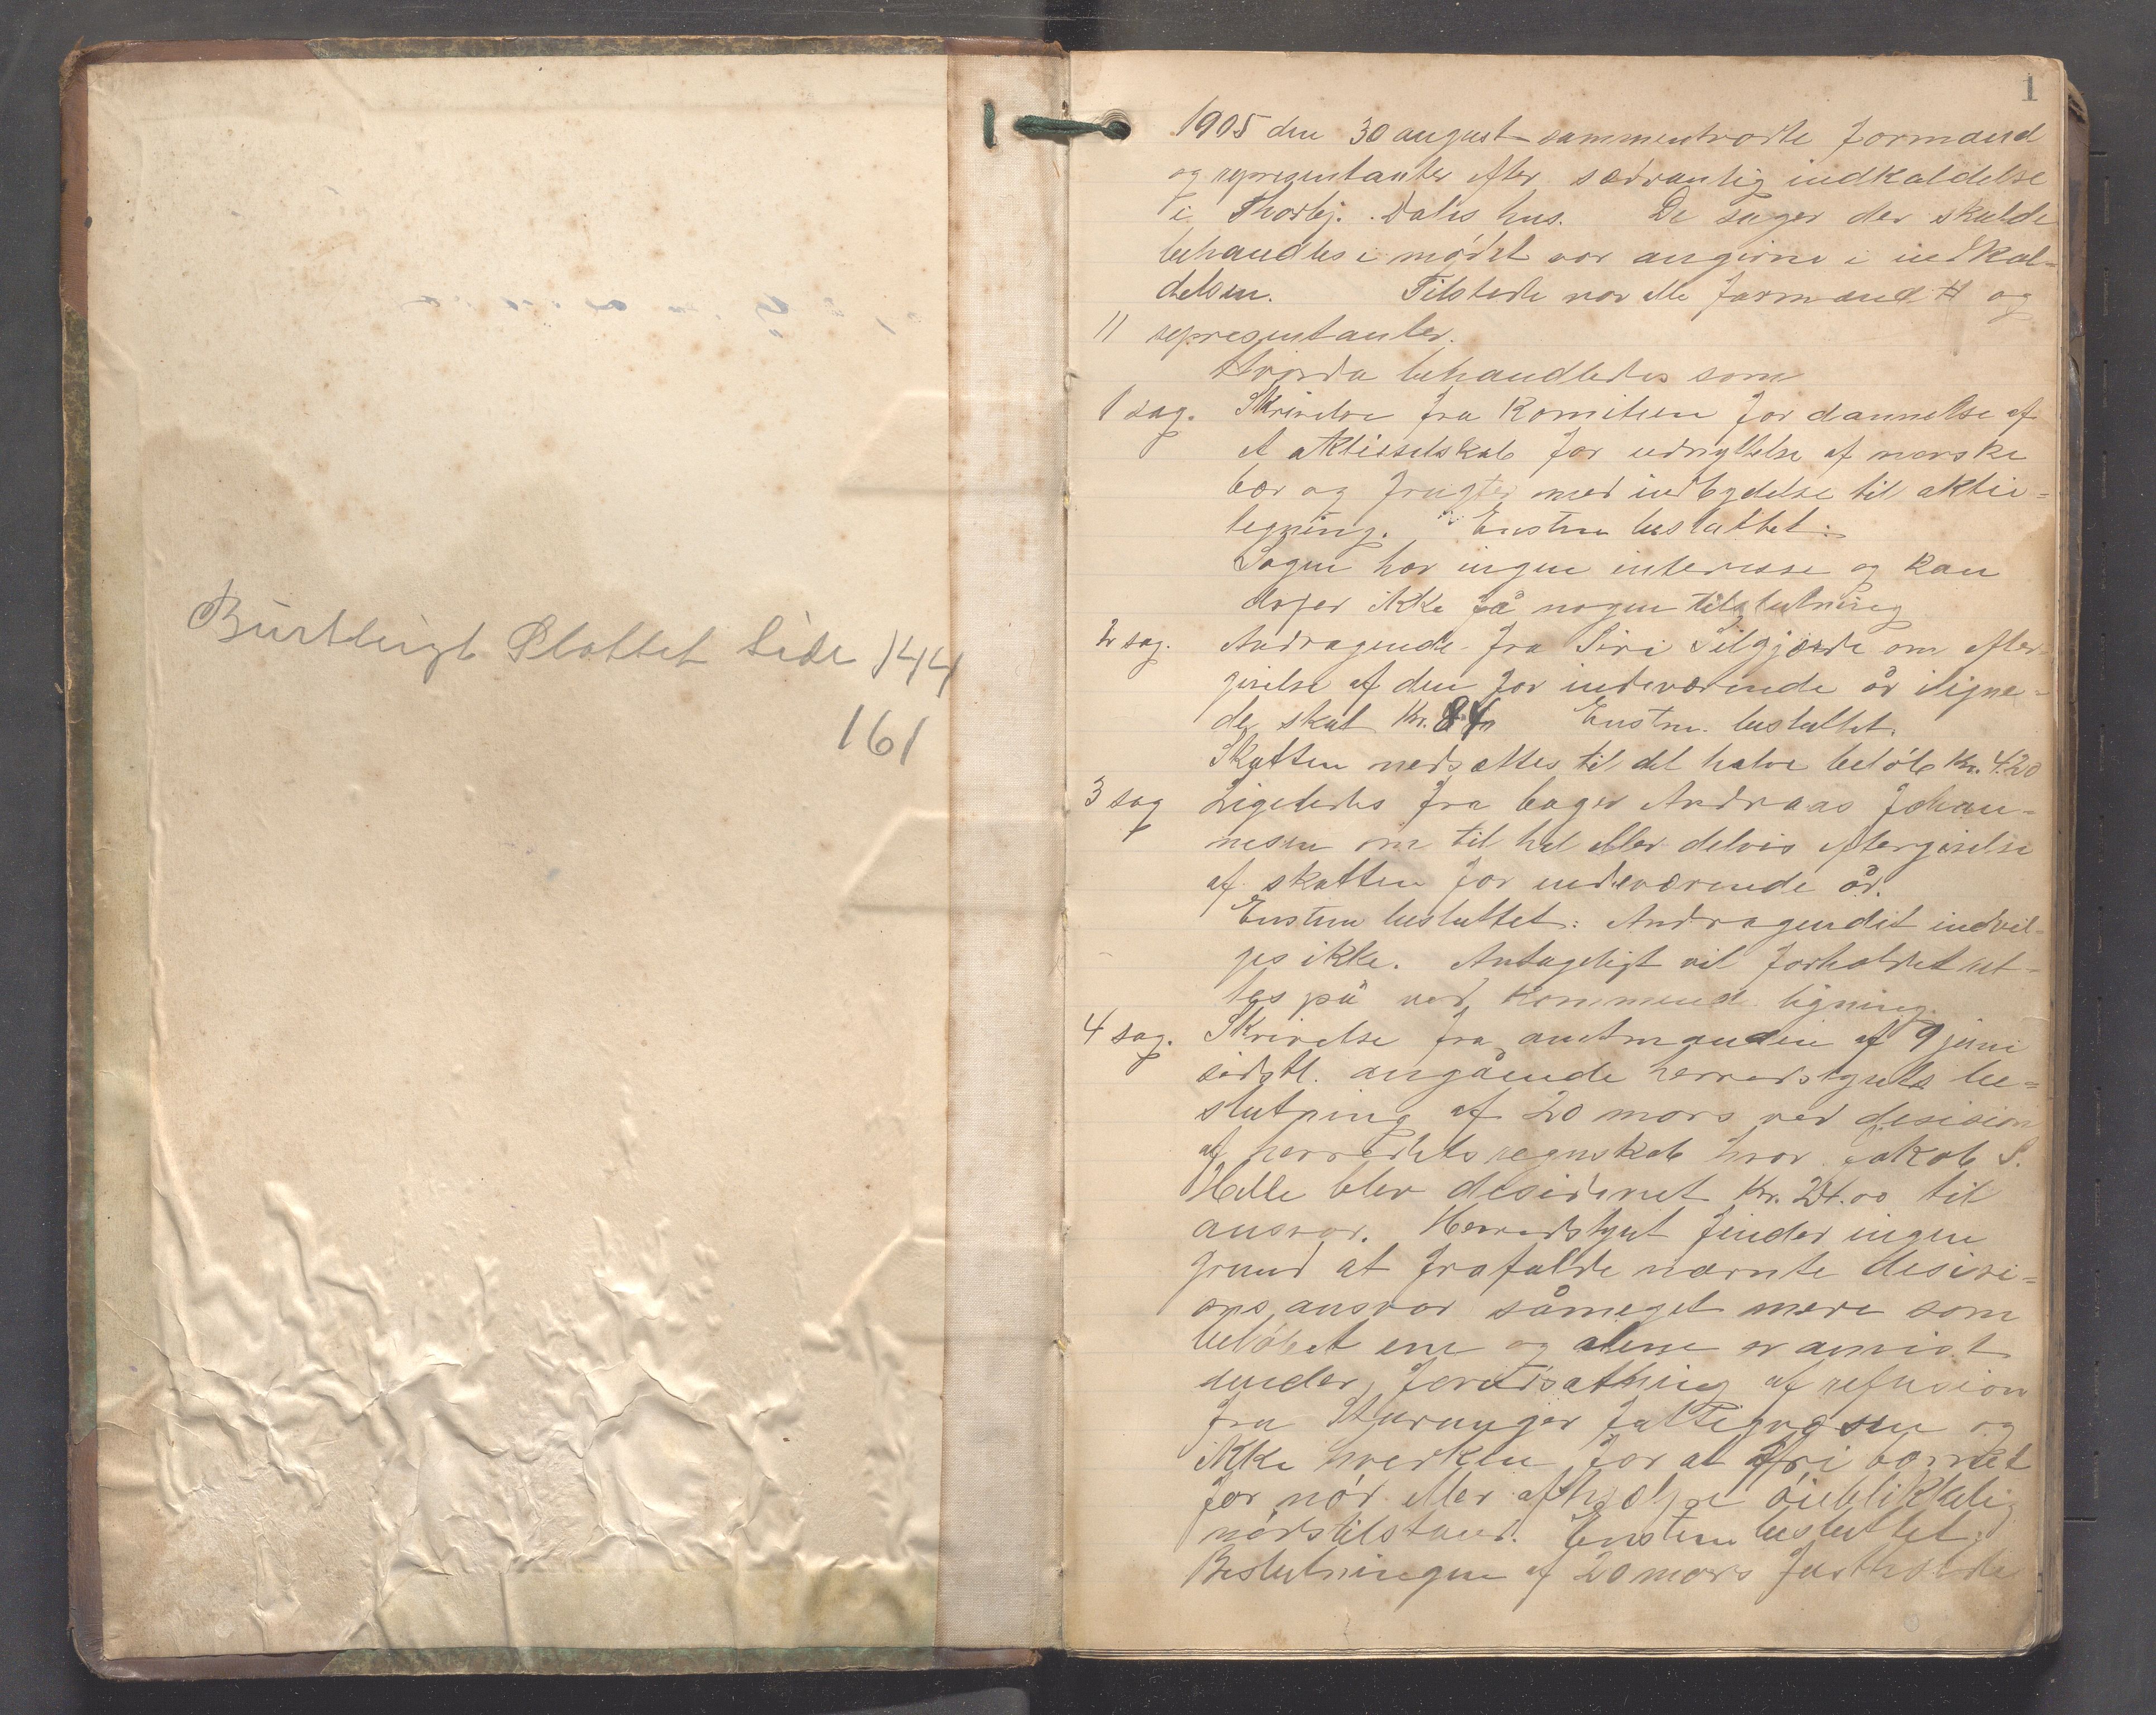 Burtleigt Slottet Side 144
161
1
1905 den 30 august sammentrådte formænd
og representanter efter sædvanlig indkaldelse
i Thorbj. Dales hus. De sager der skulde
behandles i mødet var angivne i indkal-
delsen. Tilstede var alle formænd og
11 representanter.
Hvorda behandledes som
1 sag. Skrivelse fra Komiteen for dannelse af
et aktieselskab for udnyttelse af norske
bær og frugter med indbydelse til aktie-
tegning. Enstm besluttet:
Sagen har ingen interesse og kan
derfor ikke få nogen tilslutning
2 sag. Andragende fra Siri Selgjerde om efter-
givelse af den for indeværende år iligne-
de skat Kr. Enstm. besluttet.
Skatten nedsættes til det halve beløb Kr. 4.20
3 sag Ligeledes fra bager Andreas Johan-
nesen om til hel eller delvis eftergivelse
af skatten for indeværende år.
Enstm besluttet: Andragendet indvil-
ges ikke. Antageligt vil forholdet ret-
tes på ved kommende ligning.
4 sag. Skrivelse fra amtmanden af 9 juni
sidstl. angående herredstyrets be-
slutning af 20 mars ved desision
af herredets regnskab hvor Jakob S.
Helle blev desideret Kr. 24.00 til
ansvar. Herredstyret finder ingen
grund at frafalde nævnte desisi-
ons ansvar såmeget mere som
beløbet ene og alene er anvist
under forudsætning af refusion
fra Stavanger fattigvæsen og
ikke hverken for at fri barnet
for nød eller afhjælpe øieblikkelig
nødstilstand. Enstm besluttet:
Beslutningen af 20 mars fastholdes